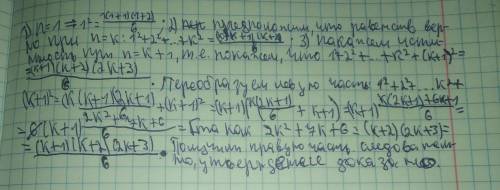 1) n=1 ⇒ 1² = (n+1)(n+2)/6; 2) предположим, что равенство вер-
но при n=k: 1²+2²+...+k² = k(k+1)(2k+1)/6. 3) Покажем
при n=k+1, т.е. покажем, что 1²+2²+...+k²+(k+1)²=
=(k+1)(k+2)(2k+3)/6. Преобразуем левую часть: 1²+2²+...k²+
(k+1)²= k(k+1)(2k+1)/6 +(k+1)²=(k+1)(k(2k+1)/6 + k+1)=(k+1) k(2k+1)+6k+1/6 =
= (k+1) 2k²+7k+6/6. Так как 2k²+7k+6=(k+2)(2k+3)=
=(k+1)(k+2)(2k+3)/6. Получим правую часть следователь
но, утверждение доказано.